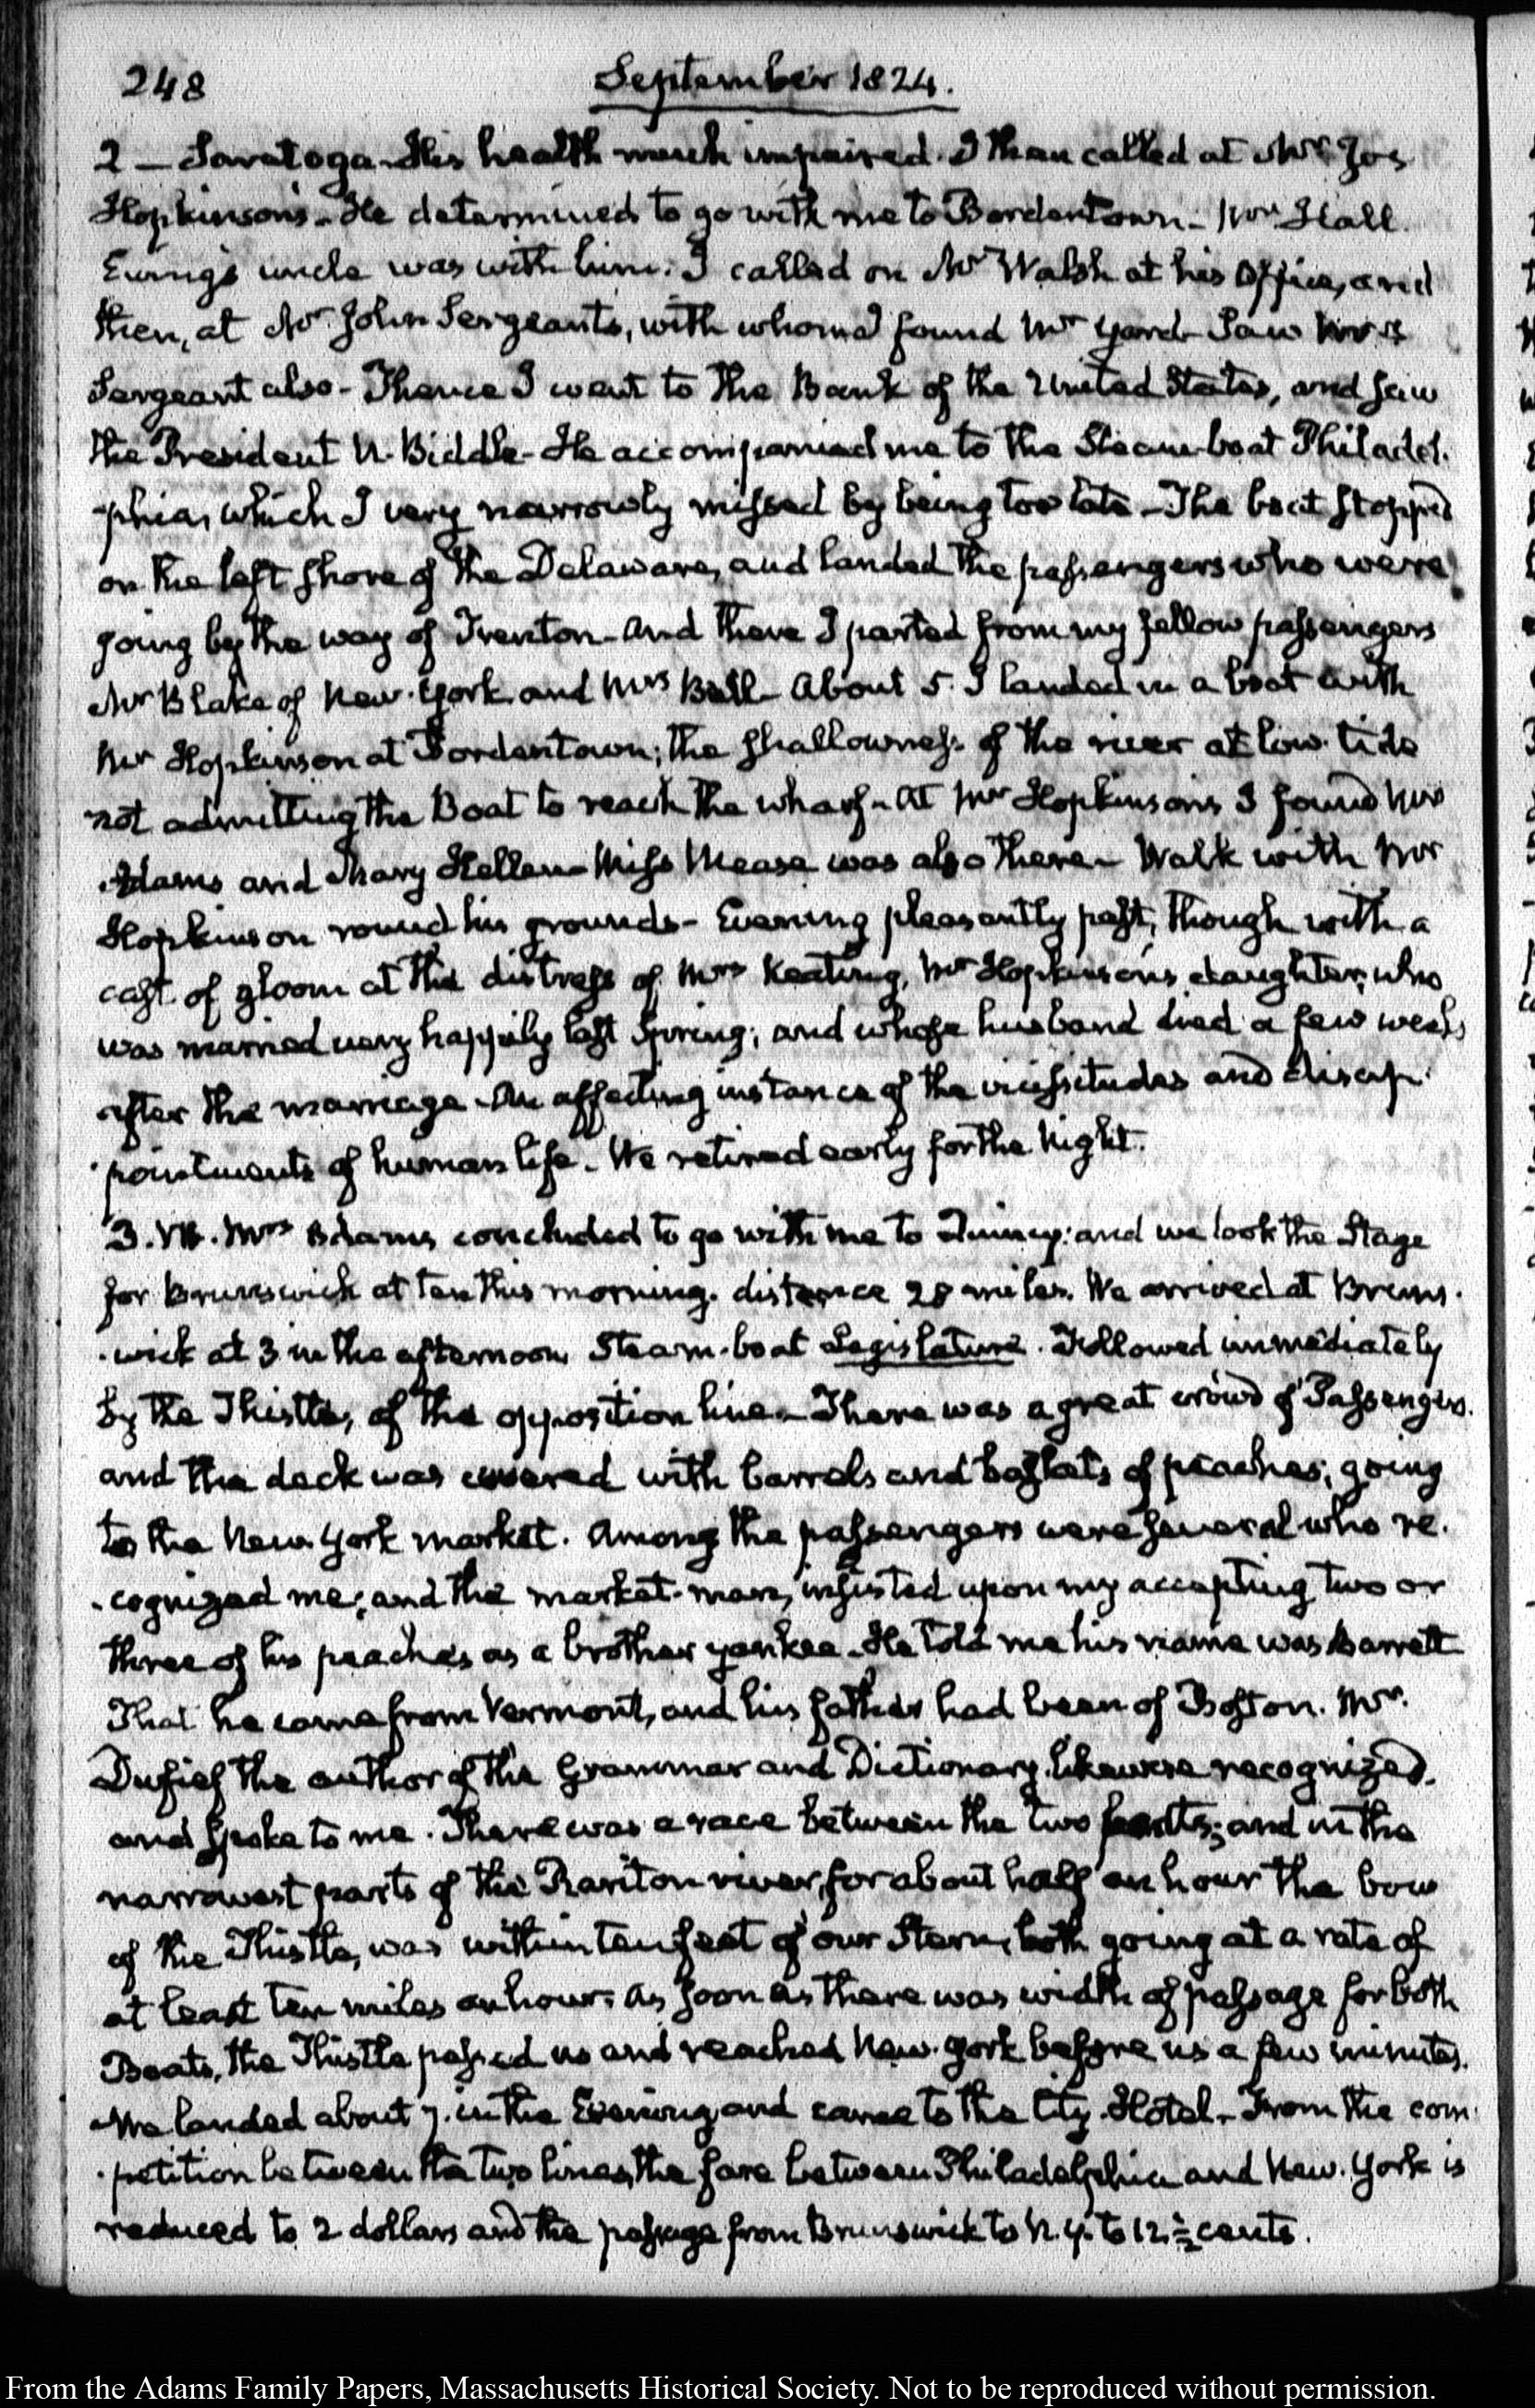 248 September 1824.
2 — Saratoga. His health much impaired. I then called at Mr. Jos
Hopkinson's. He determined to go with me to Bordentown. Mr. Hall
Ewing's uncle was with him. I called on Mr. Walsh at his Office, and
then, at Mr. John Sergeant's, with whom I found Mr. Yard. Saw Mrs.
Sergeant also — Thence I went to the Bank of the United States, and saw
the President N. Biddle. He accompanied me to the Steam-boat Philadel-
-phia, which I very narrowly missed by being too late — The boat stopped
on the left shore of the Delaware, and landed the passengers who were
going by the way of Trenton. And there I parted from my fellow passengers
Mr Blake of New-York and Mrs Ball. About 5. I landed in a boat with
Mr Hopkinson at Bordentown; the shallowness of the river at low tide
not admitting the Boat to reach the wharf. At Mr Hopkinson's I found Mrs
Adams and Mary Hellen. Miss Mease was also there — Walk with Mr
Hopkinson round his grounds — Evening pleasantly past, though with a
cast of gloom at the distress of Mrs Keating, Mr Hopkinson's daughter, who
was married very happily last Spring; and whose husband died a few weeks
after the marriage. An affecting instance of the vicissitudes and disap-
-pointments of human life. We retired early for the Night.
3. VI. Mrs Adams concluded to go with me to Quincy: and we took the Stage
for Brunswick at ten this morning. distance 28 miles. We arrived at Bruns-
-wick at 3 in the afternoon Steam-boat Legislature. Followed immediately
by the Thistle, of the opposition line. There was a great crowd of Passengers.
and the deck was covered with barrels and baskets of peaches, going
to the New-York market. Among the passengers were several who re-
-cognized me; and the market-man, insisted upon my accepting two or
three of his peaches as a brother yankee. He told me his name was Barrett
That he came from Vermont, and his father had been of Boston. Mr.
Dufief the author of the Grammar and Dictionary likewise recognized,
and spoke to me. There was a race between the two boats; and in the
narrowest parts of the Rariton river, for about half an hour the bow
of the Thistle, was within ten feet of our Stern, both going at a rate of
at least ten miles an hour. As soon as there was width of passage for both
Boats, the Thistle passed us and reached New-York before us a few minutes.
We landed about 7. in the Evening and came to the City-Hotel. From the com-
-petition between the two lines, the fare between Philadelphia and New-York is
reduced to 2 dollars and the passage from Brunswick to N.Y. to 12 1/2 cents.
From the Adams Family Papers, Massachusetts Historical Society. Not to be reproduced without permission.